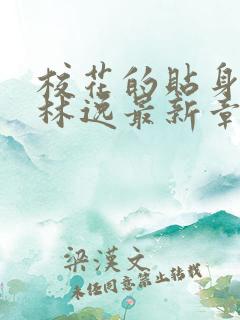 校花的贴身
林逸最新章
梁漢文
未经同意禁止转载